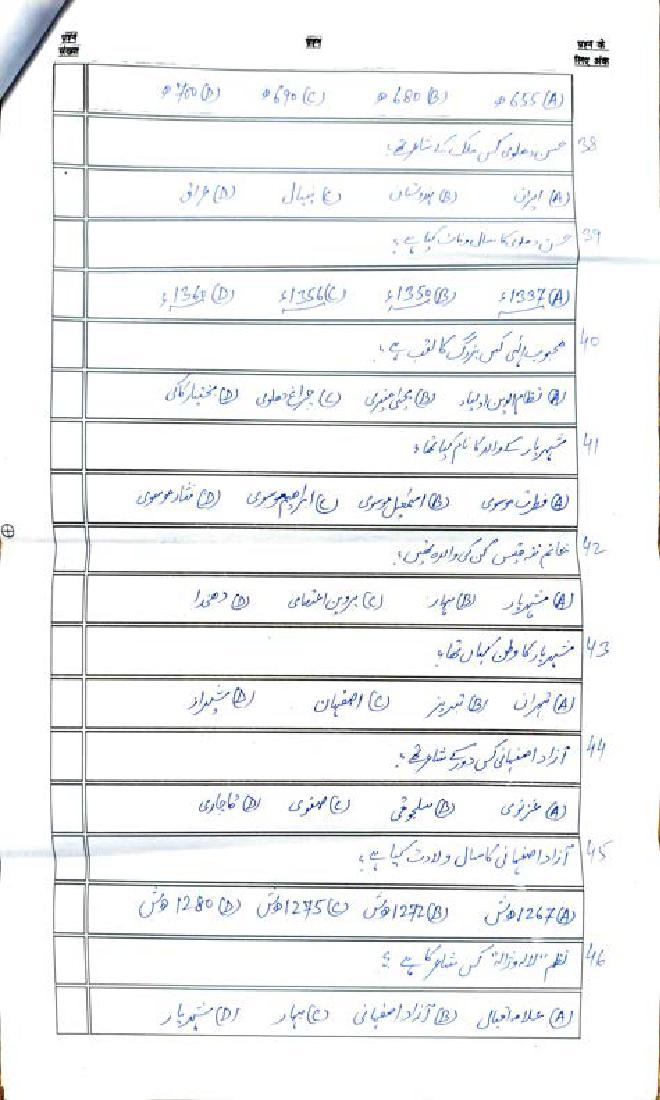 प्रश्न संख्या प्रश्न प्रश्न के लिए अंक
(A) 655ھ (B) 680ھ (C) 690ھ (D) 700ھ
38 حسن دہلوی کس ملک کے شاعر تھے؟
(A) ایران (B) ہندوستان (C) نیپال (D) عراق
39 حسن دہلوی کا سال وفات کیا ہے؟
(A) 1337ء (B) 1350ء (C) 1356ء (D) 1360ء
40 محبوب الٰہی کس بزرگ کا لقب ہے؟
(A) نظام الدین اولیاء (B) یحیٰی منیری (C) چراغ دہلوی (D) بختیار کاکی
41 شہریار کے والد کا نام کیا تھا؟
(A) موسوی (B) اسمٰعیل موسوی (C) ابراہیم موسوی (D) موسوی
42 خانم کس کی والدہ تھیں؟
(A) شہریار (B) بہار (C) پروین اعتصامی (D) دھخدا
43 شہریار کا وطن کہاں تھا؟
(A) تہران (B) تبریز (C) اصفہان (D) شیراز
44 آزاد اصفہانی کس دور کے شاعر تھے؟
(A) غزنوی (B) سلجوقی (C) صفوی (D) قاچاری
45 آزاد اصفہانی کا سال ولادت کیا ہے؟
(A) 1267ھش (B) 1272ھش (C) 1275ھش (D) 1280ھش
46 نظم "لالہ و ژالہ" کس شاعر کا ہے؟
(A) علامہ اقبال (B) آزاد اصفہانی (C) بہار (D) شہریار